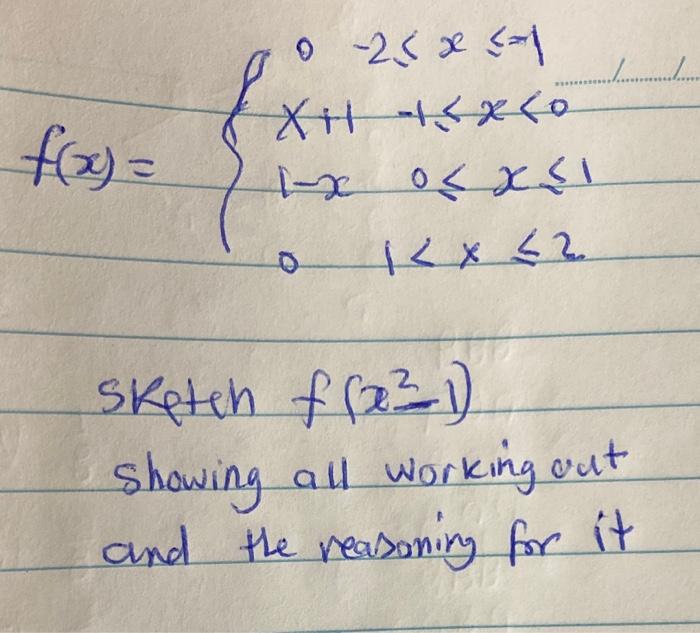 0 -2 ≤ x ≤ -1
x+1 -1 ≤ x < 0
f(x) =
1-x 0 ≤ x ≤ 1
0 1 < x ≤ 2
sketch f(x²-1)
showing all working out
and the reasoning for it